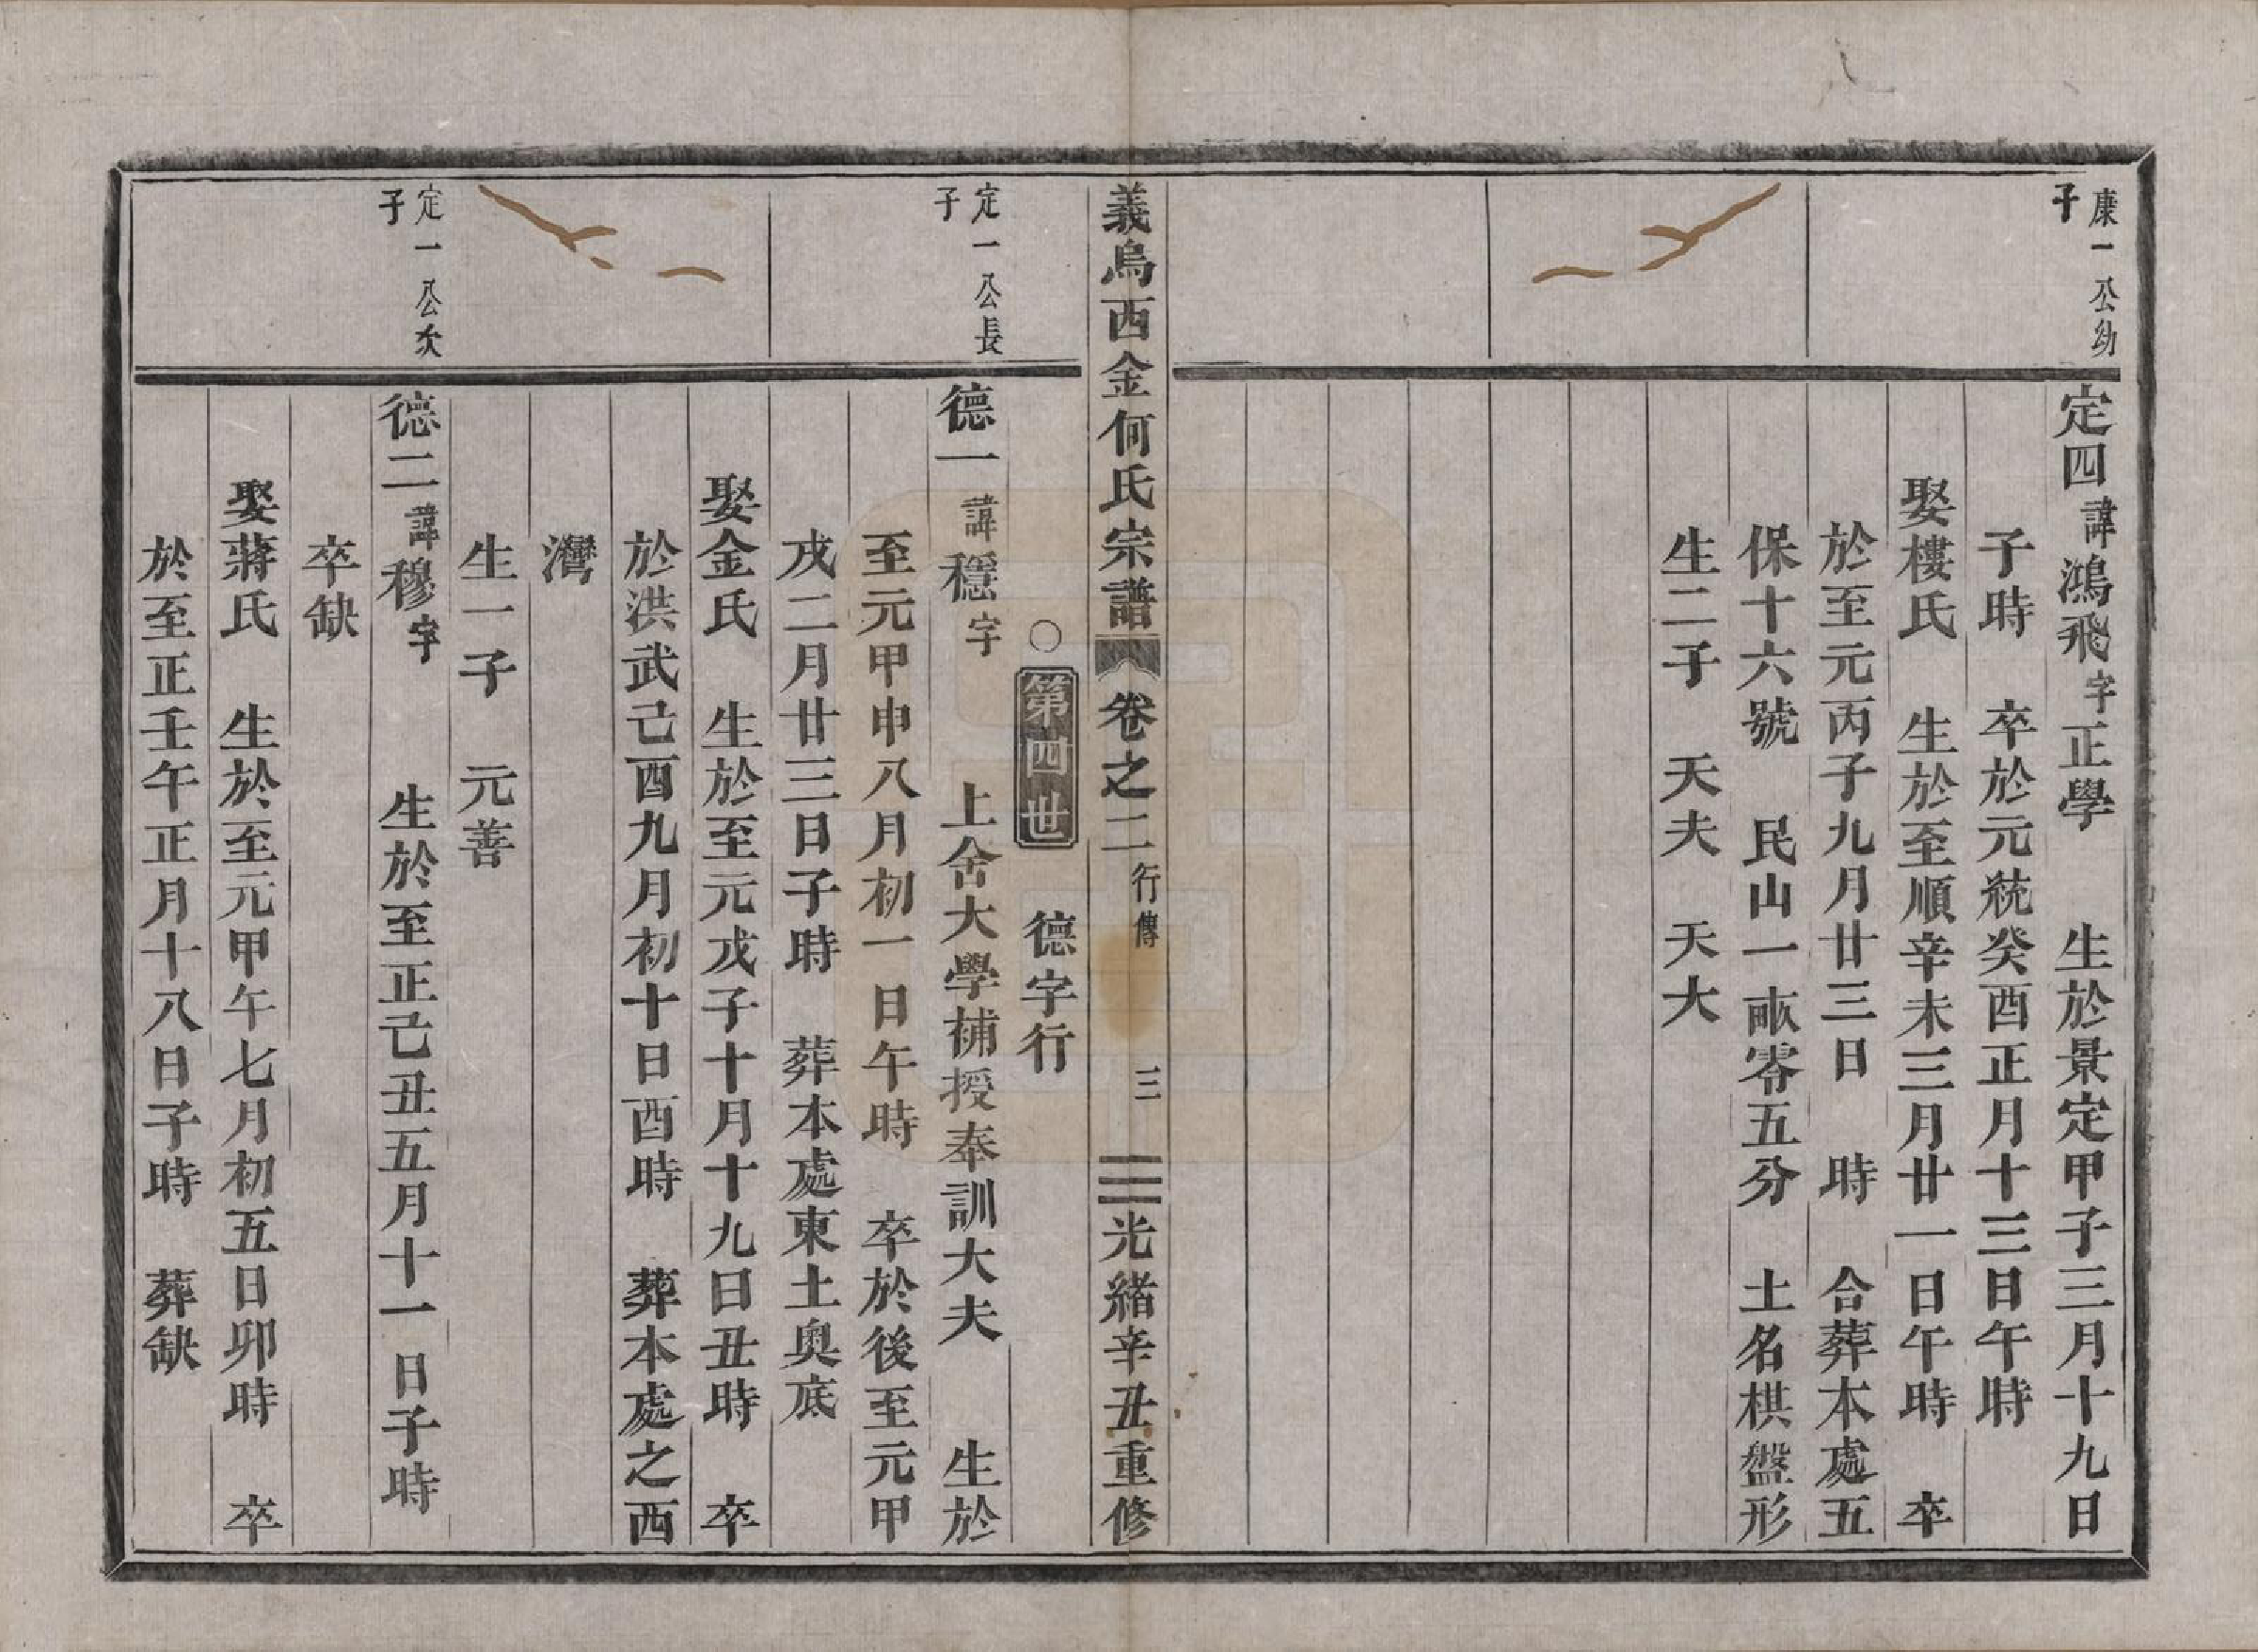 康一公幼
子
定四諱鴻飛字正學　生於景定甲子三月十九日
子時　卒於元統癸酉正月十三日午時
娶樓氏　生於至順辛未三月廿一日午時　卒
於至元丙子九月廿三日　時　合葬本處五
保十六號　民山一畝零五分　土名棋盤形
生二子　天夫　天大
義烏西金何氏宗譜　卷之二　行傳　三　光緒辛丑重修
○第四世　德字行
定一公長
子
德一諱穩字　上舍大學補授奉訓大夫　生於
至元甲申八月初一日午時　卒於後至元甲
戌二月廿三日子時　葬本處東土奧底
娶金氏　生於至元戊子十月十九日丑時　卒
於洪武己酉九月初十日酉時　葬本處之西
灣
生一子　元善
定一公次
子
德二諱穆字　生於至正己丑五月十一日子時
卒缺
娶蔣氏　生於至元甲午七月初五日卯時　卒
於至正壬午正月十八日子時　葬缺